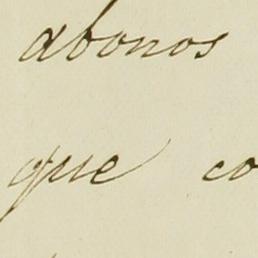 abonos
que co